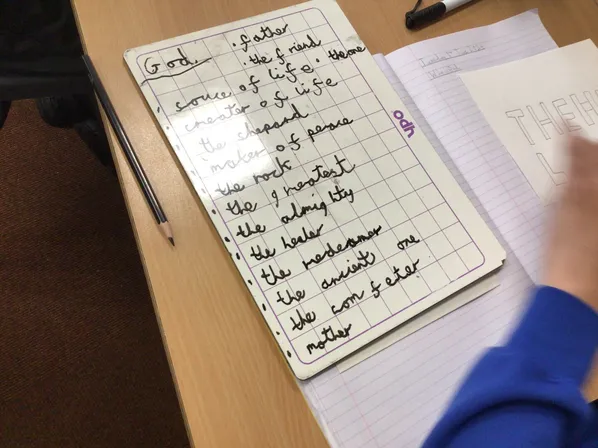 God.
· father
· the friend
· souce of life · the one
· creater of life
· the shepard
· maker of peace
· the rock
· the greatest
· the almighty
· the healer
· the redeamer
· the ancient one
· the com feter
· mother
odh
THEH
L